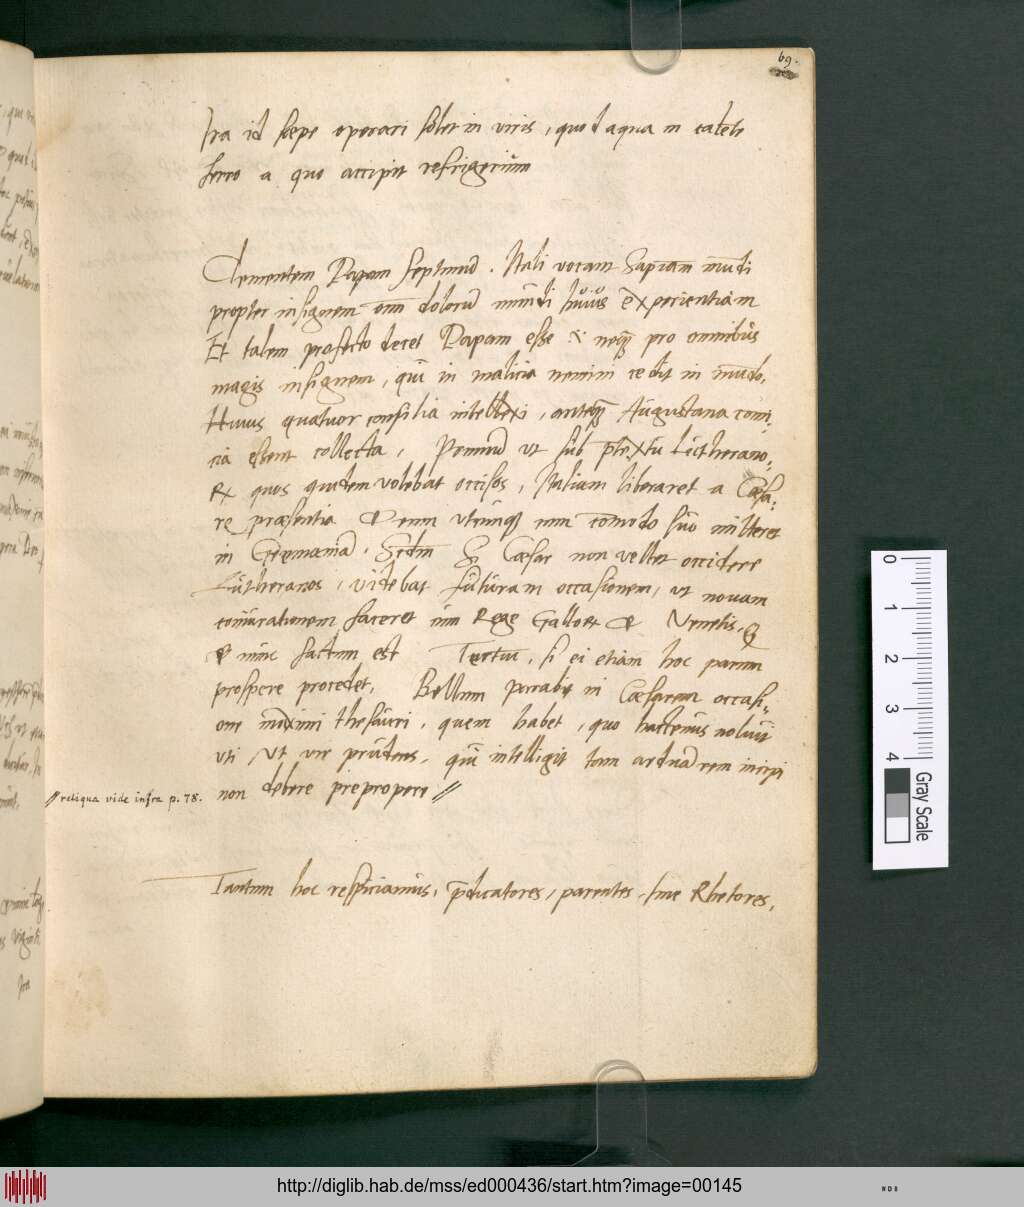 69.
Ira id sæpe operari solet in viris, quod aqua in cadēte
ferro a quo accipit refrigerium
Clementem Papam septimū. Itali vocant Sapiam mūdi
propter insignem omn dolorū mūndi huius experientiam
Et talem profecto decet Papam esse
pro omnibus
magis insignem, qui in malicia nemini cedit in mūdo.
Huius quatuor consilia intellexi, anteq Augustana comi:
cia essent collecta, Primū ut sub ptextu Lutherano:
quos quidem volebat occisos, Italiam liberaret a Cæsa:
re præsentia & eum utrunq cum comodo suo mitteret
in Germaniā. Scdm Si Cæsar non vellet occidere
Lutheranos, videbat futuram occasionem, ut novam
coniurationem faceret cum Rege Gallor & Venetis, Q
& nunc factum est Tertiu, si ei etiam hoc parum
prospere procedet, Bellum parabit in Cæsarem occasi:
one maximi thesauri, quem habet, quo hactenus noluit
uti Ut vir prudens, qui intelligit tam arduā rem incipi
non debere prepropere //
// reliqua vide infra p. 78.
Tantum hoc respiciamus, pdicatores, parentes sive Rhetores,
0 1 2 3 4
Gray Scale
http://diglib.hab.de/mss/ed000436/start.htm?image=00145